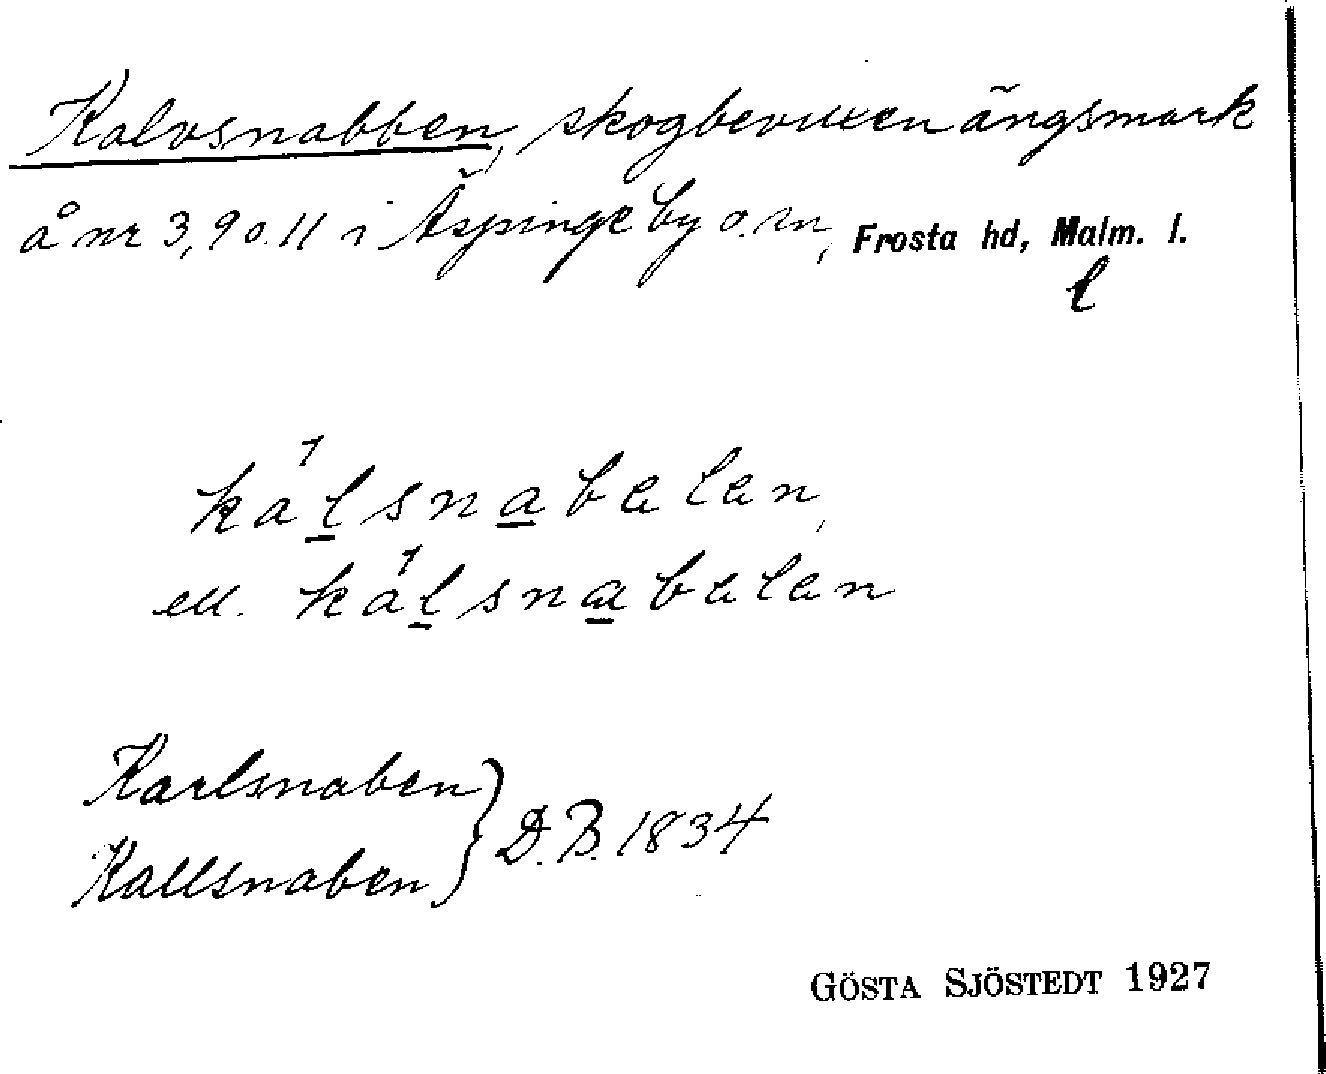 Kalvsnabben, skogbevuxen ängsmark
å nr 3, 9 o. 11 i Äspinge by o. sn, Frosta hd, Malm. l.
l
kálsnabalan,
ell. kálsnabalan
Karlsnaben
Kallsnaben } D.B. 1834
GÖSTA SJÖSTEDT 1927